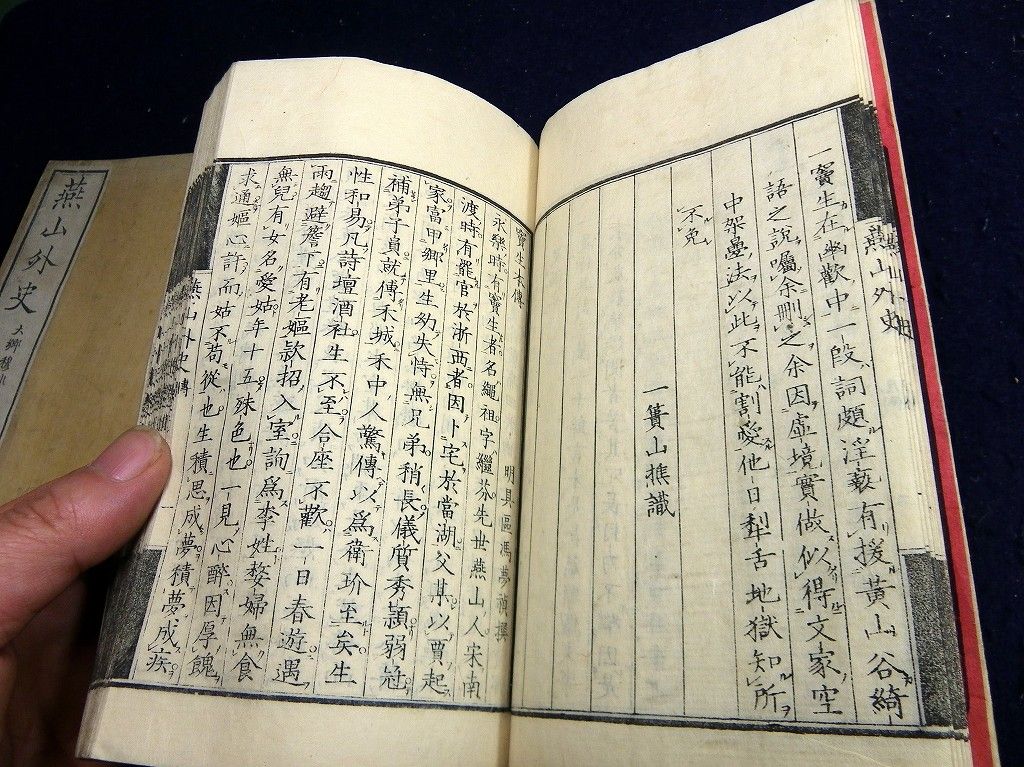 燕山外史
一竇生在幽歡中一段詞頗淫褻有援黃山谷綺
語之說囑余刪之余因虛境實做似得文家空
中架疊法以此不能割愛他日犁舌地獄知所
不免
一簣山樵識
竇生本傳
明具區馮夢禎撰
永樂時有竇生者名繩祖字繼芬先世燕山人宋南
渡時有罷官於浙西者因卜宅於當湖父某以賈起
家富甲鄉里生幼失恃無兄弟稍長儀質秀頴弱冠
補弟子員就傅禾城禾中人驚傳以爲衛玠至矣生
性和易凡詩壇酒社生不至合座不歡一日春遊遇
雨趨避簷丁有老嫗欵招入室詢爲李姓嫠婦無食
無兒有女名愛姑年十五殊色也一見心醉因厚餽
求通嫗心許而姑不苟從也生積思成夢積夢成疾
燕山外史傳
一
燕山外史
大鄉穆